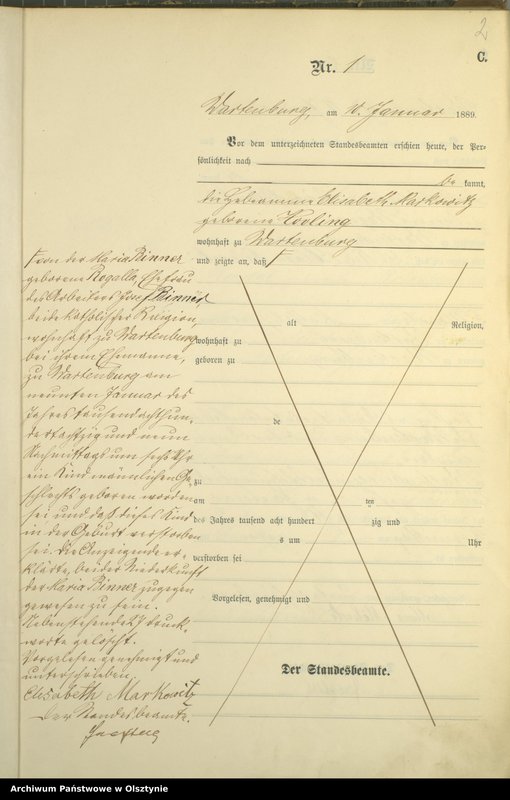 2
C.
Nr. 1
Wartenburg, am 10. Januar 1889.
Vor dem unterzeichneten Standesbeamten erschien heute, der Per-
sönlichkeit nach
be kannt,
die Hebeamme Elisabeth Markowitz
geborene
wohnhaft zu Wartenburg
und zeigte an, daß
von der Maria Binner
geborene Rogalla, Ehefrau
des Arbeiters Binner
beide katholischer Religion,
wohnhaft zu Wartenburg
bei ihrem Ehemanne,
zu Wartenburg am
neunten Januar des
Jahres tausend achthun-
dert achtzig und neun
Nachmittags um sechs Uhr
ein Kind männlichen Ge-
schlechts geboren worden
sei und daß dieses Kind
in der Geburt verstorben
sei. Die Anzeigende er-
klärte, bei der Niederkunft
der Maria Binner zugegen
gewesen zu sein.
Nebenstehende 27 Druck-
worte gelöscht.
Vorgelesen genehmigt und
unterschrieben
Elisabeth Markowitz
Der Standesbeamte.
alt Religion,
wohnhaft zu
geboren zu
de
zu
am ten
des Jahres tausend acht hundert zig und
s um Uhr
verstorben sei
Vorgelesen, genehmigt und
Der Standesbeamte.
Archiwum Państwowe w Olsztynie